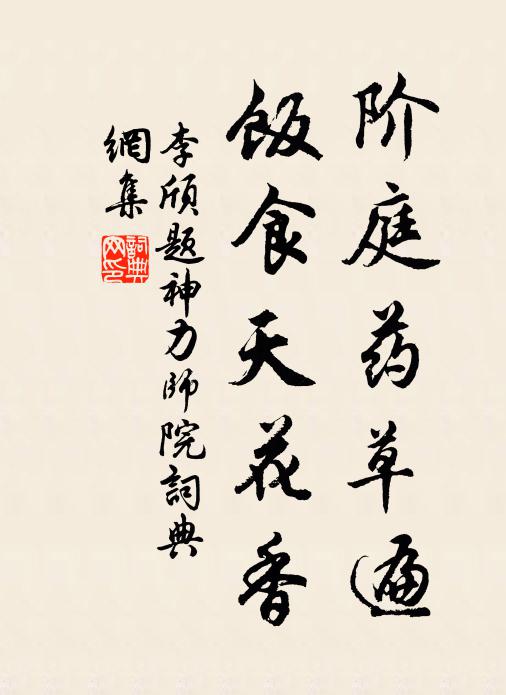 阶庭药草遍
饭食天花香
李颀题神力師院詞典
網集
詞典网印